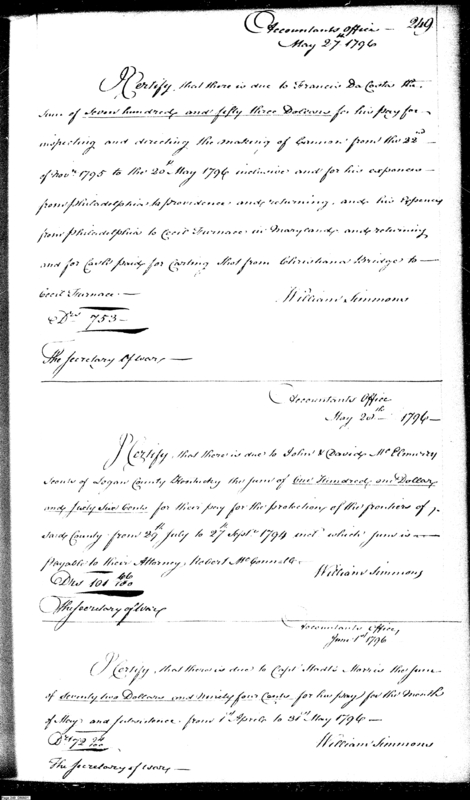 Accountants Office — 249
May 27th 1796
I Certify, that there is due to Francis Da Costa the
Sum of Seven hundred and fifty three Dollars for his pay for
inspecting and directing the making of Cannon from the 22nd
of Novr 1795 to the 20th May 1796 inclusive and for his expences
from Philadelphia to providence and returning, and his expences
from Philadelphia to Cecil Furnace in Maryland and returning
and for Cash paid for Carting Shot from Christiana Bridge to
Cecil Furnace. —
William Simmons
Drs 753 —
The Secretary of War —
Accountants Office
May 28th 1796 —
I Certify, that there is due to John & David Mc
Scouts of Logan County Kentucky the sum of One Hundred one Dollars
and Sixty Six Cents for their pay for the protection of the frontiers of
said County from 29th July to 27th Septr 1794 incl which sum is
payable to their Attorney, Robert McConnell
Drs 101 66/100
William Simmons
The Secretary of War
Accountants Office,
June 1st 1796
I Certify, that there is due to Capt Morris the sum
of Seventy two Dollars and Ninety four Cents, for his pay for the Month
of May and Subsistence from 1st April to 31st May 1796 —
Drs 72 94/100
William Simmons
The Secretary of War —